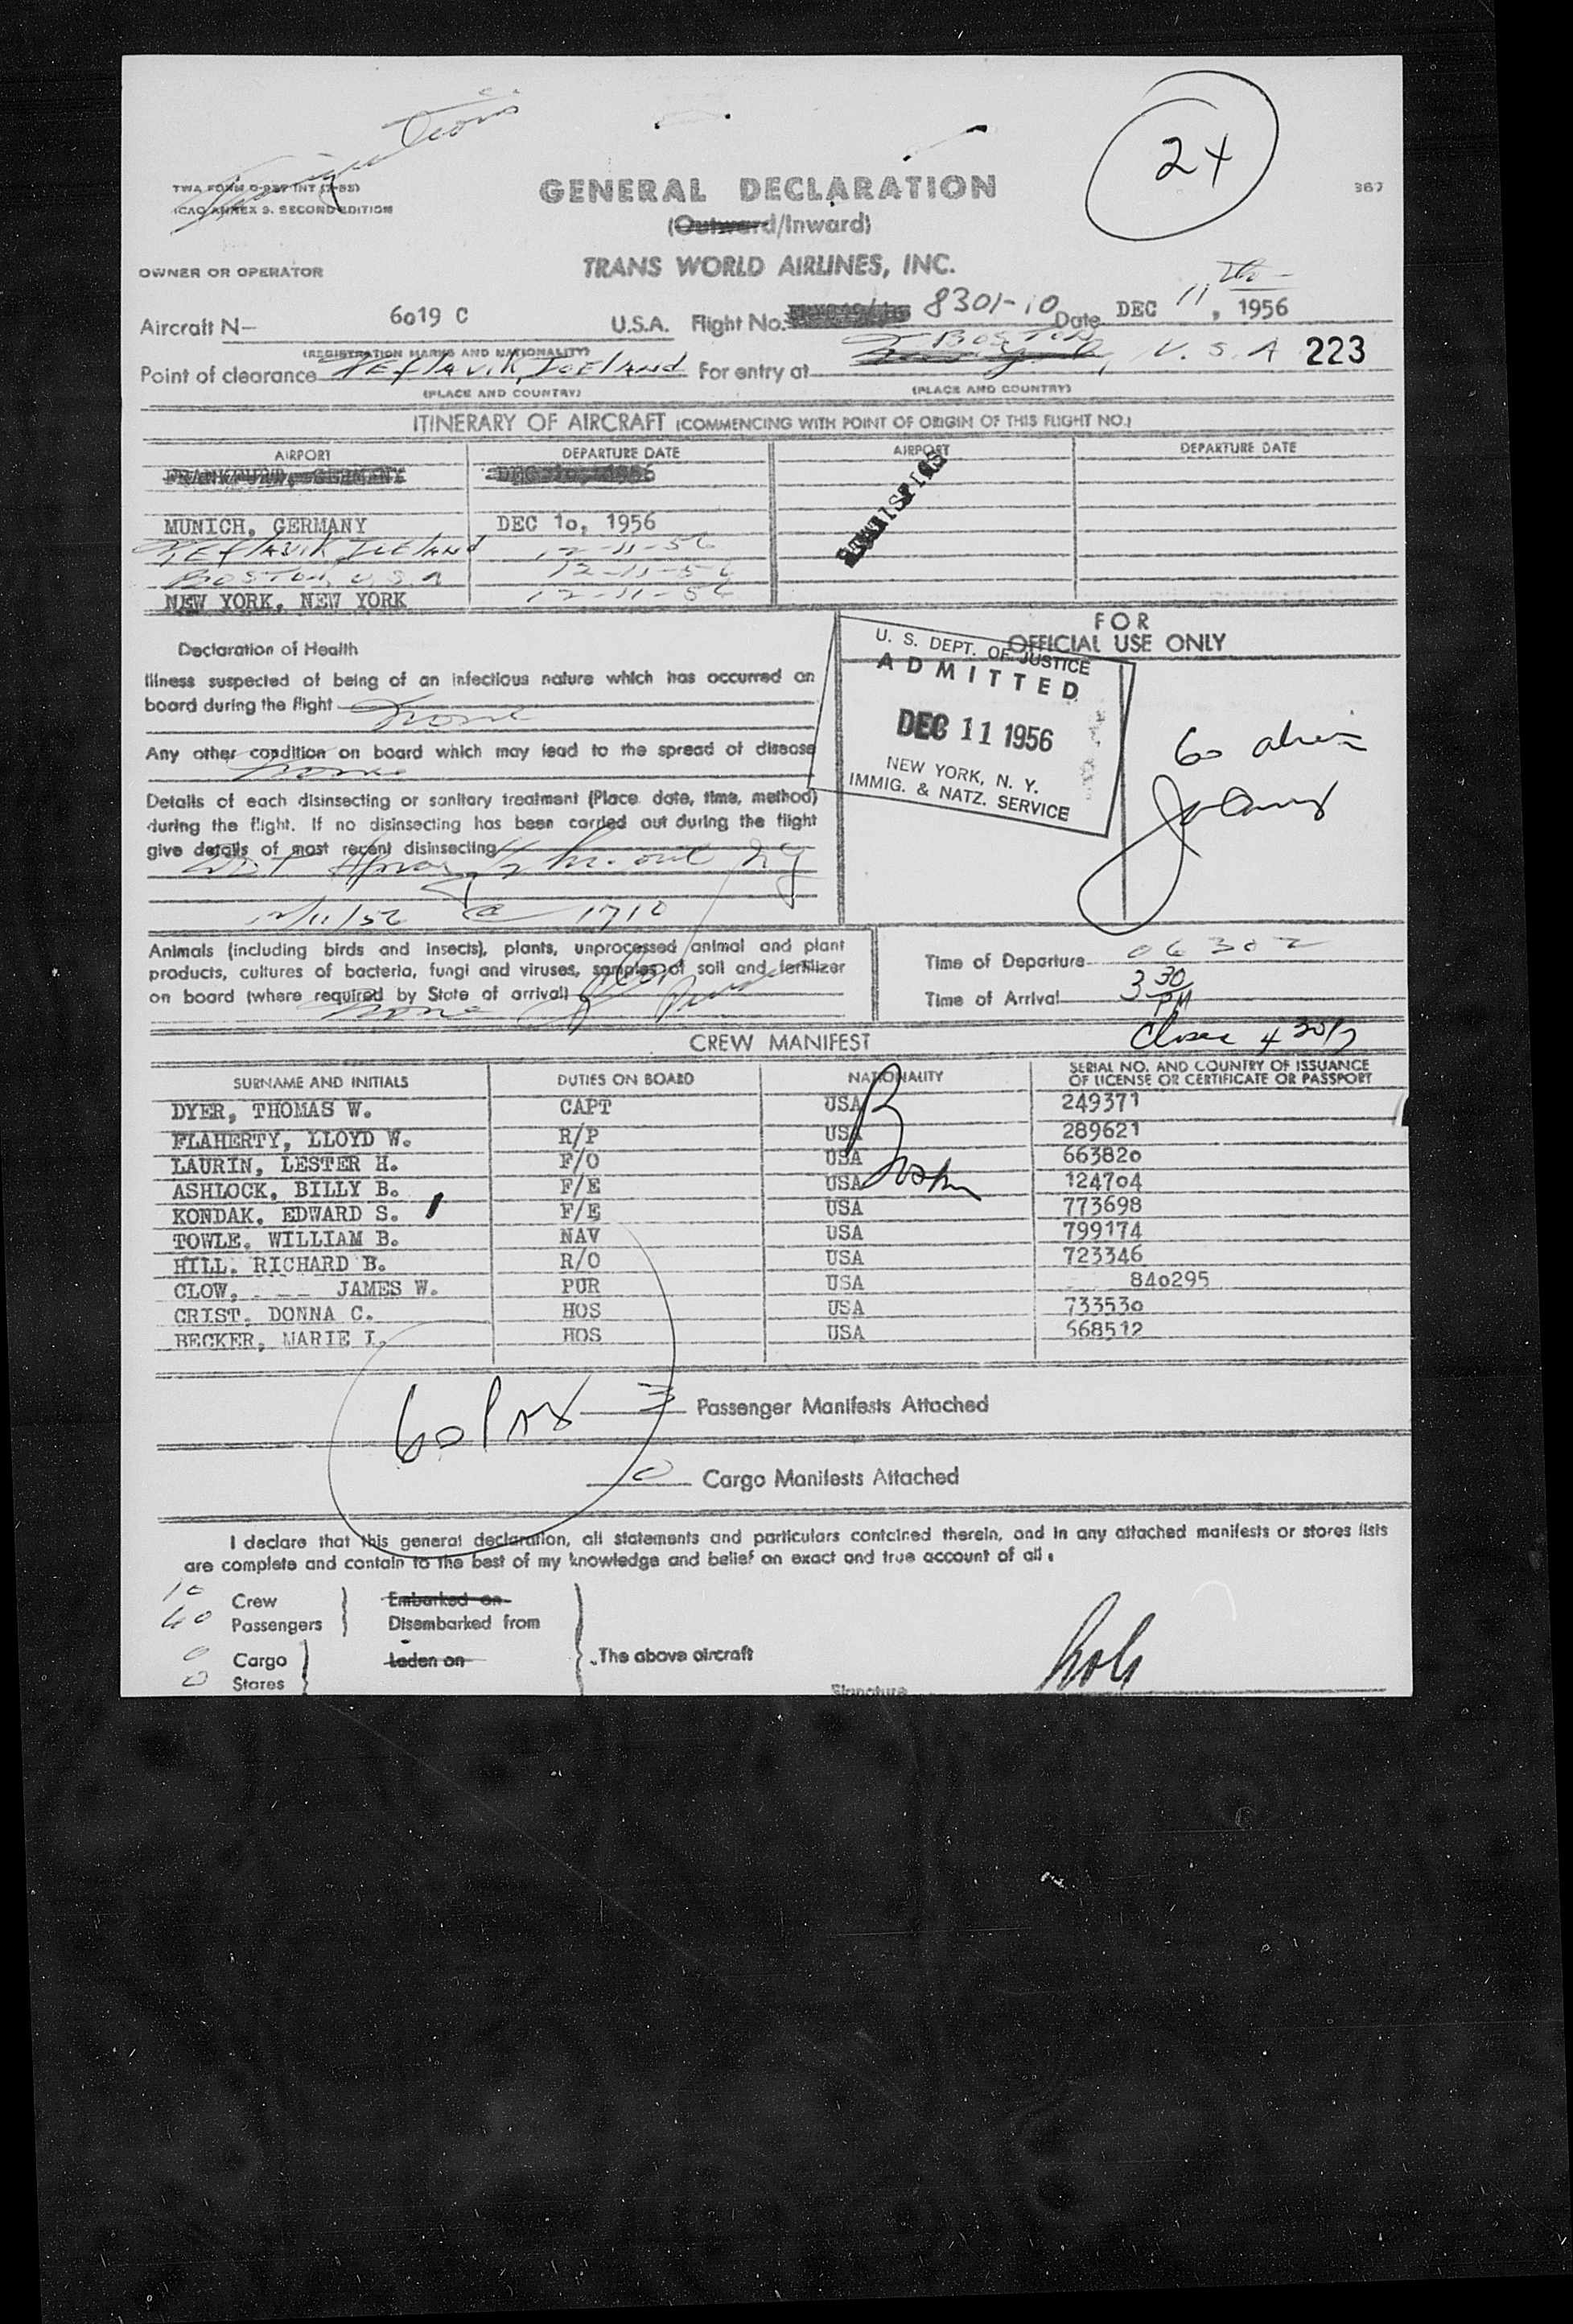 24
TWA FORM O-927 INT (7-55)
ICAO ANNEX 9. SECOND EDITION
GENERAL DECLARATION
367
(Outward/Inward)
OWNER OR OPERATOR
TRANS WORLD AIRLINES, INC.
Aircraft N— 6o19 C U.S.A. Flight No. 8301-10 Date DEC 11th, 1956
(REGISTRATION MARKS AND NATIONALITY)
Point of clearance KEflAVIK, ICElAND For entry at BOSTON, U.S.A 223
(PLACE AND COUNTRY) (PLACE AND COUNTRY)
ITINERARY OF AIRCRAFT (COMMENCING WITH POINT OF ORIGIN OF THIS FLIGHT NO.)
AIRPORT DEPARTURE DATE AIRPORT DEPARTURE DATE
FRANKFURT, GERMANY DEC 1o, 1956
MUNICH, GERMANY DEC 1o, 1956
KEflAVIK ICElAND 12-11-56
BOSTON, U.S.A 12-11-56
NEW YORK, NEW YORK 12-11-56
FOR
OFFICIAL USE ONLY
Declaration of Health
Illness suspected of being of an infectious nature which has occurred on
board during the flight None
Any other condition on board which may lead to the spread of disease
None
Details of each disinsecting or sanitary treatment (Place, date, time, method)
during the flight. If no disinsecting has been carried out during the flight
give details of most recent disinsecting
hr. out NY
12/11/56 @ 1710
U. S. DEPT. OF JUSTICE
ADMITTED
DEC 11 1956
NEW YORK, N. Y.
IMMIG. & NATZ. SERVICE
60 aliens
Animals (including birds and insects), plants, unprocessed animal and plant
products, cultures of bacteria, fungi and viruses, samples of soil and fertilizer
on board (where required by State of arrival)
None
Time of Departure 0630Z
Time of Arrival 3 30 PM
Close 4 30 P
CREW MANIFEST
SURNAME AND INITIALS DUTIES ON BOARD NATIONALITY SERIAL NO. AND COUNTRY OF ISSUANCE OF LICENSE OR CERTIFICATE OR PASSPORT
DYER, THOMAS W. CAPT USA 249371
FLAHERTY, LLOYD W. R/P USA 289621
LAURIN, LESTER H. F/O USA 66382o
ASHLOCK, BILLY B. F/E USA 1247o4
KONDAK, EDWARD S. F/E USA 773698
TOWLE, WILLIAM B. NAV USA 799174
HILL, RICHARD B. R/O USA 723346
CLOW, - -- JAMES W. PUR USA 84o295
CRIST, DONNA C. HOS USA 73353o
BECKER, MARIE I. HOS USA 568512
3 Passenger Manifests Attached
0 Cargo Manifests Attached
I declare that this general declaration, all statements and particulars contained therein, and in any attached manifests or stores lists
are complete and contain to the best of my knowledge and belief an exact and true account of all.
10 Crew Embarked on
60 Passengers Disembarked from
0 Cargo Laden on The above aircraft
0 Stores
Signature